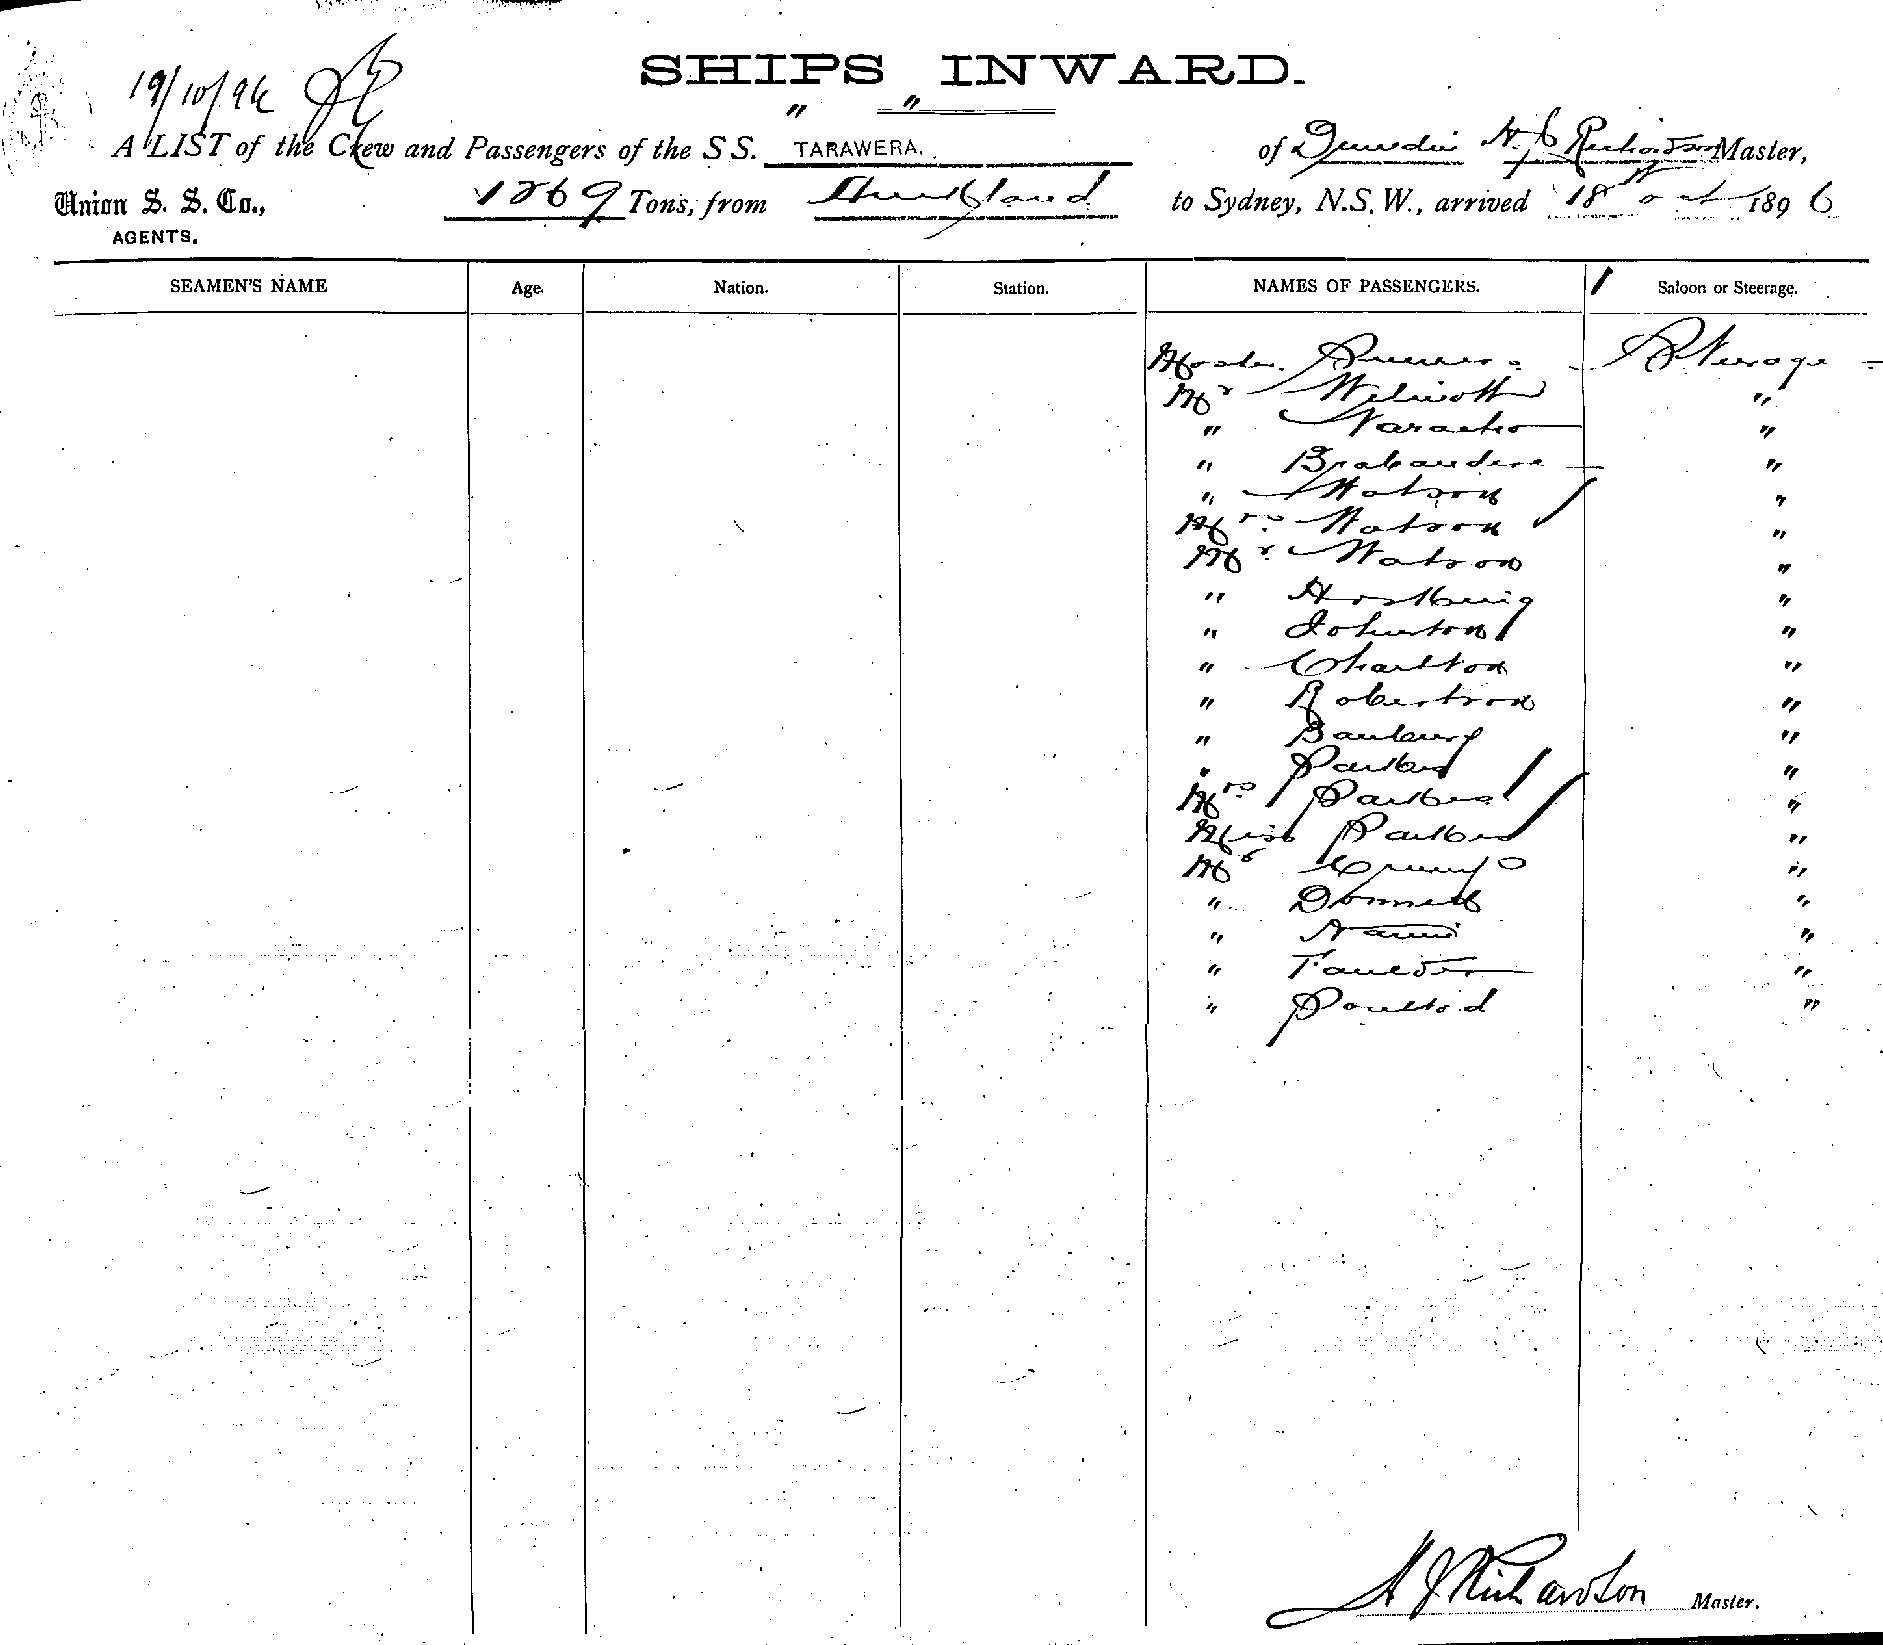 19/10/96
SHIPS INWARD.
" "
A LIST of the Crew and Passengers of the S S. TARAWERA. of Dunedin H. J. Richardson Master,
Union S. S. Co., 1269 Tons, from Auckland to Sydney, N.S.W., arrived 18th Oct 1896
AGENTS.
SEAMEN'S NAME Age. Nation. Station. NAMES OF PASSENGERS. Saloon or Steerage.
Master Steerage
Mr "
" "
" Brabandere "
" Watson "
Mrs Watson "
Mr Watson "
" Hosking "
" Johnston "
" Charlton "
" Robertson "
" Banbury "
" Parker "
Mrs Parker "
Miss Parker "
Mr Crump "
" Donnell "
" "
" "
" "
H J Richardson Master.